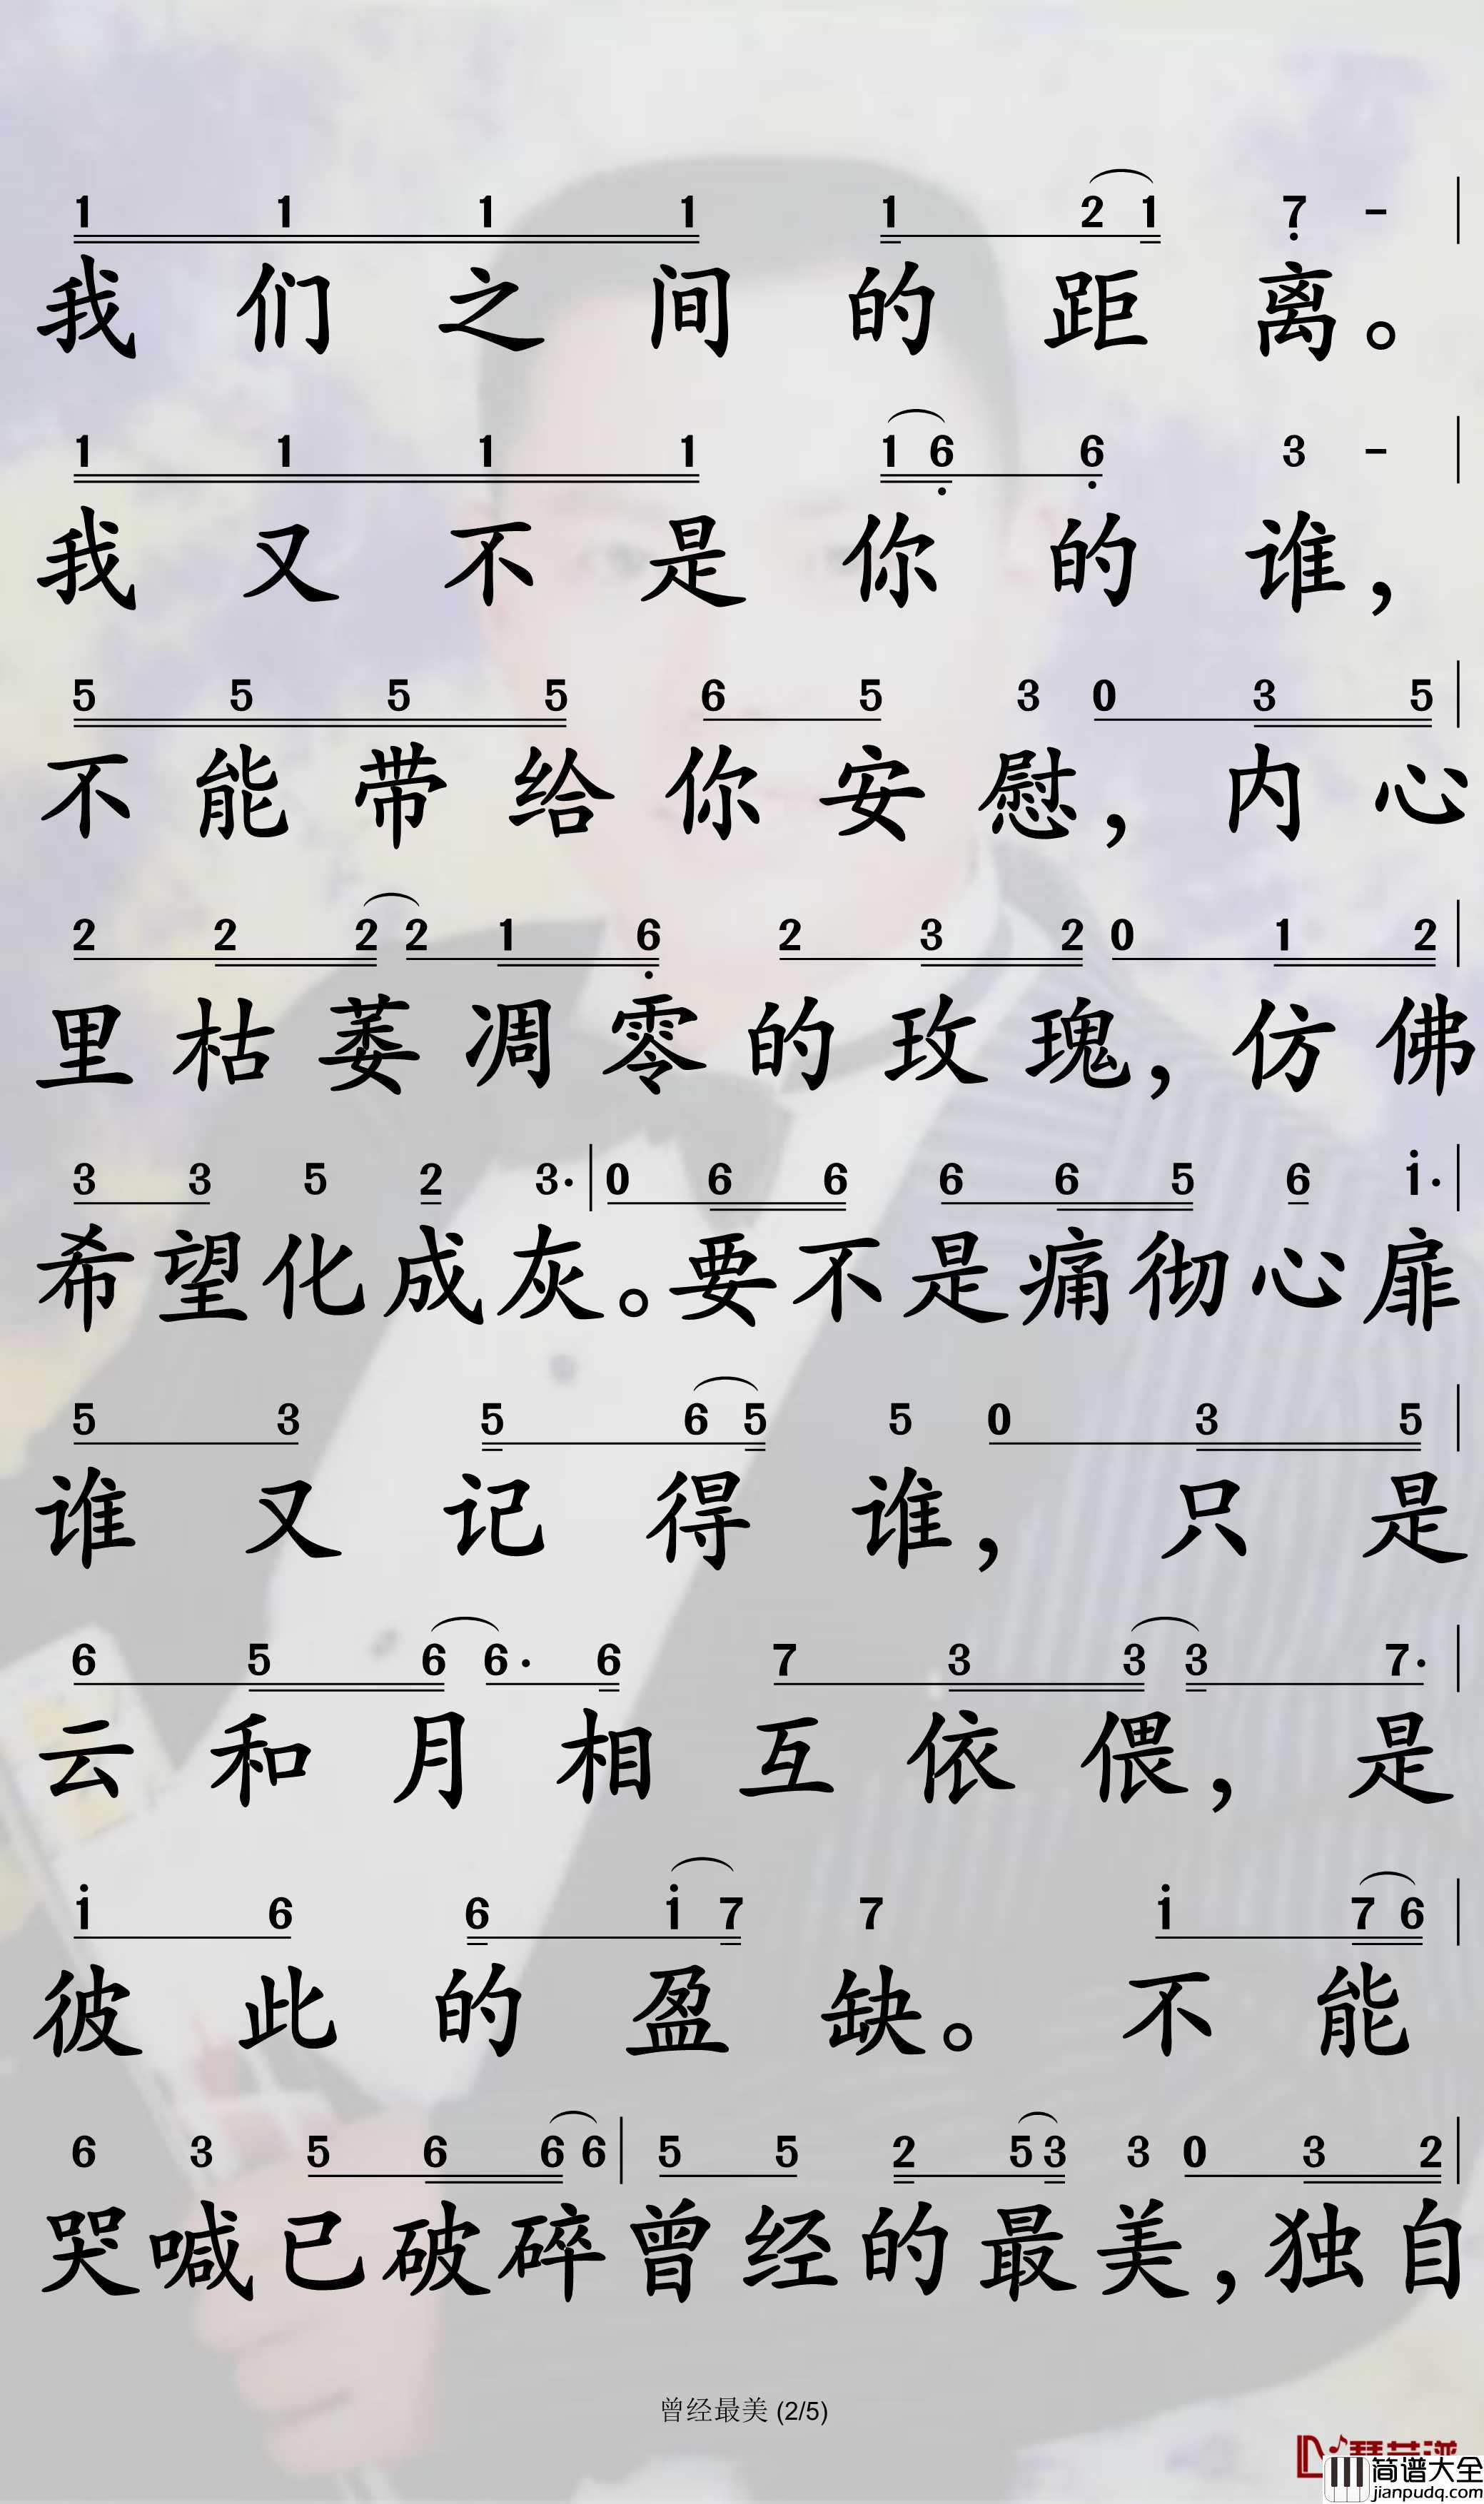 1 1 1 1 1 2 1 7 -
我们之间的距离。
1 1 1 1 1 6 6 3 -
我又不是你的谁，
5 5 5 5 6 5 3 0 3 5
不能带给你安慰，内心
2 2 2 2 1 6 2 3 2 0 1 2
里枯萎凋零的玫瑰，仿佛
3 3 5 2 3· | 0 6 6 6 6 5 6 i·
希望化成灰。要不是痛彻心扉
5 3 5 6 5 5 0 3 5
谁又记得谁，只是
6 5 6 6· 6 7 3 3 3 7·
云和月相互依偎，是
i 6 6 i 7 7 i 7 6
彼此的盈缺。不能
6 3 5 6 6 6 | 5 5 2 5 3 3 0 3 2
哭喊已破碎曾经的最美，独自
曾经最美 (2/5)
简谱大全
jianpudq.com